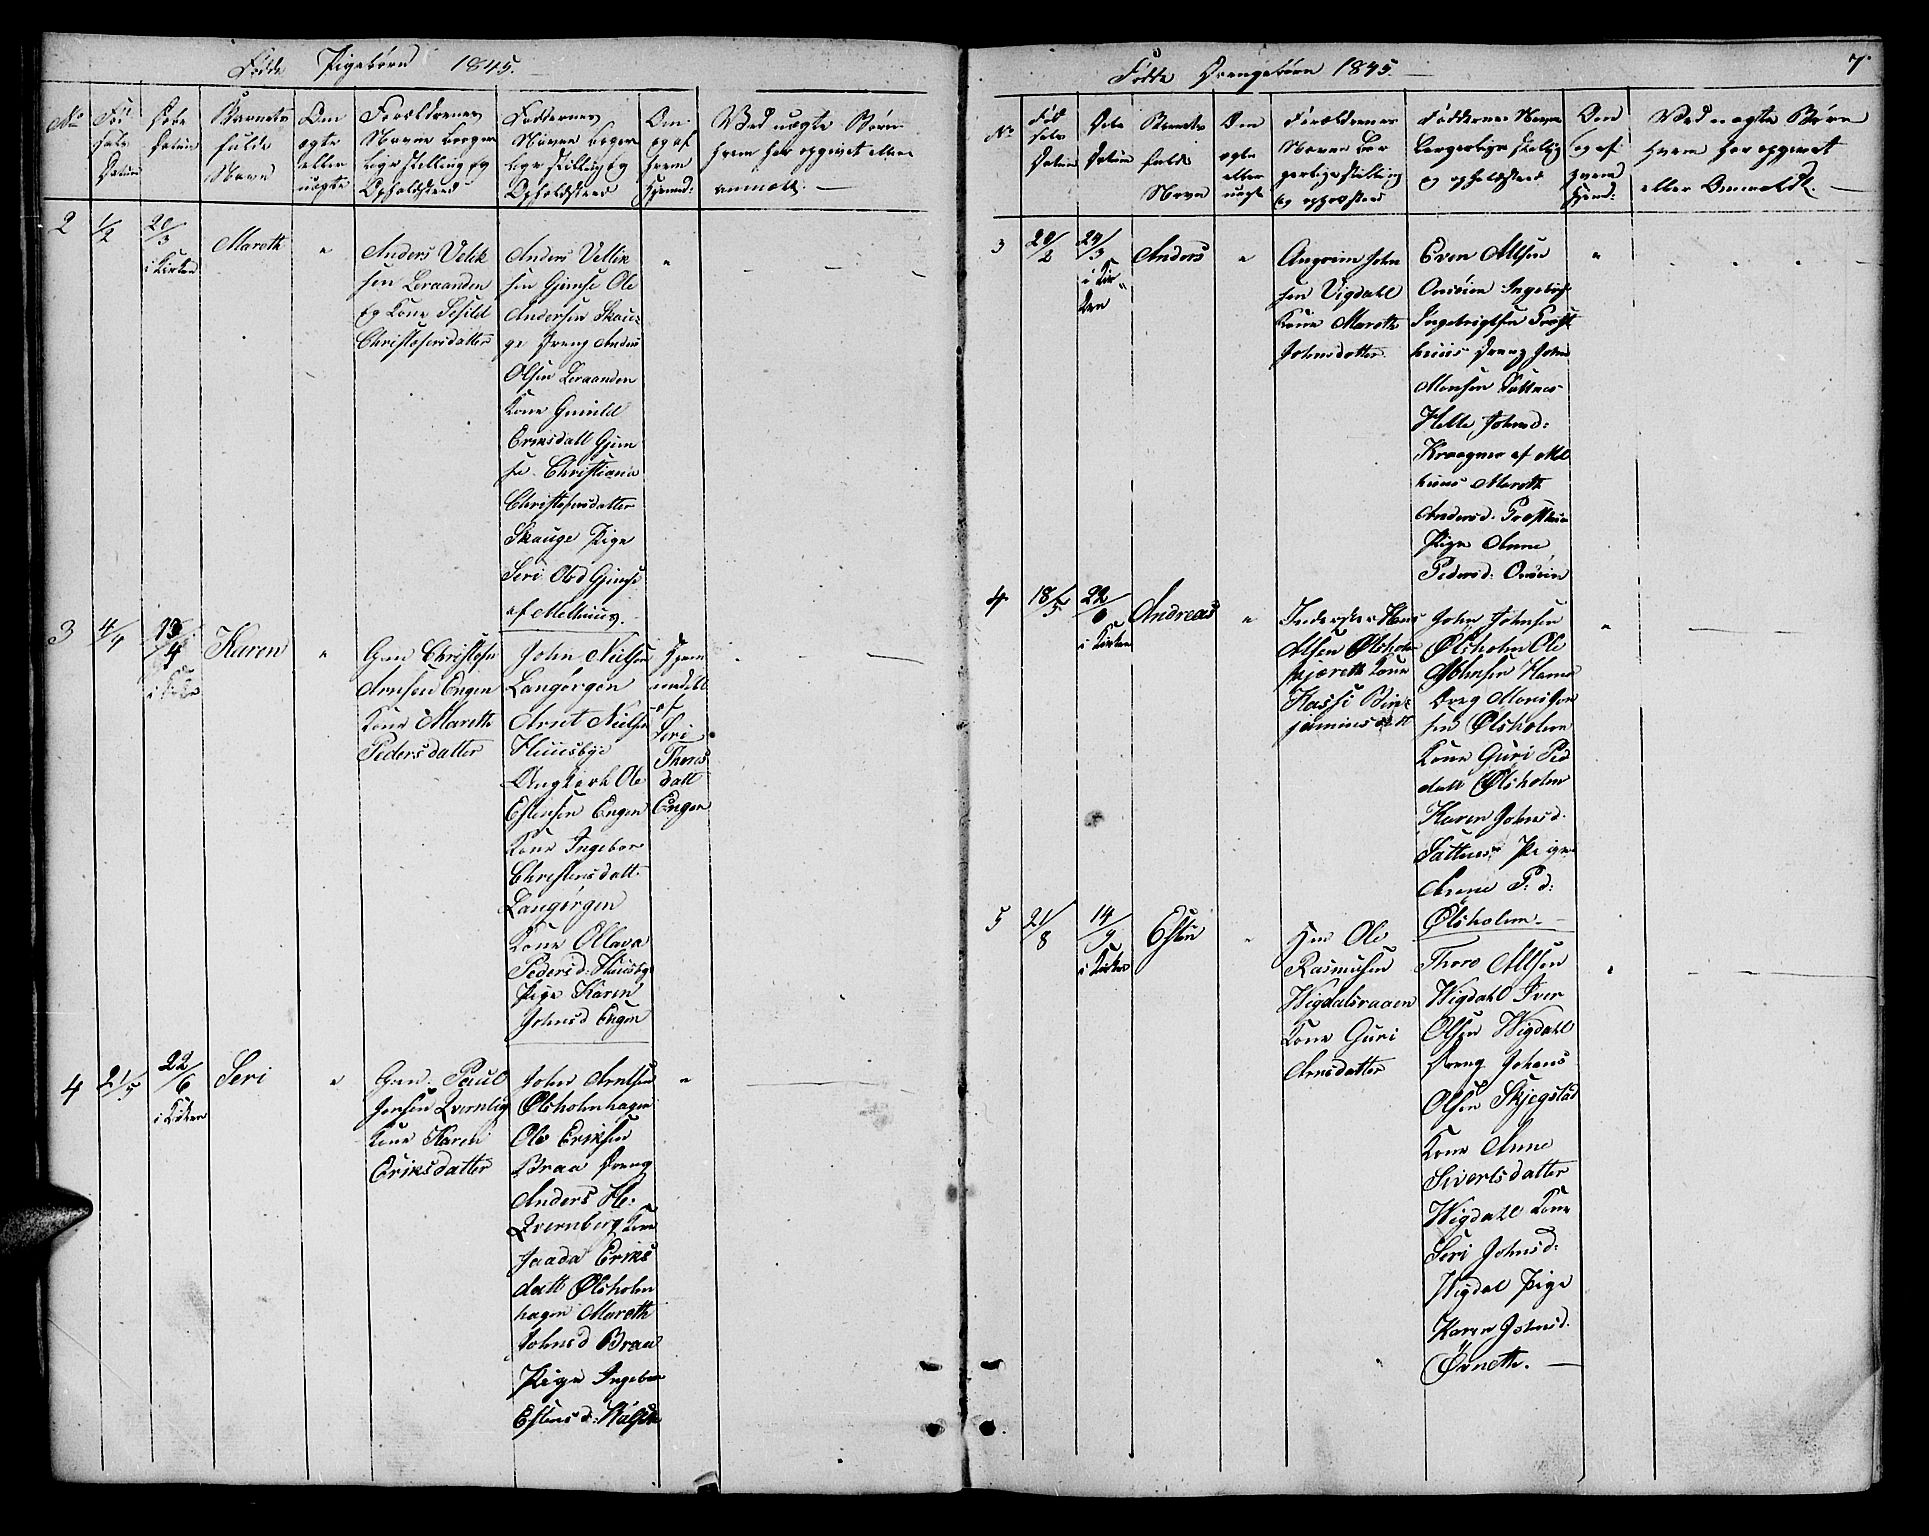 Fødde Pigebørn 1845.
No
Fødsels Datum
Døbe Datum
Barnets fulde Navn
Om ægte eller uægte
Forældrenes Navne borgerlige stilling og Opholdsted
Faddernes Navne borgerlige stilling og Opholdsted
Om og af hvem Hjemd:
Ved uægte Børn hvem har opgivet eller anmeldt. —
2
1/2
20/3
i Kirken
Mareth
"
Anders Vellik
sen Leraanden
og Kone Sesild
Christofersdatter
Anders Vellik
sen Gimse Ole
Andersen Skau-
ge Dreng Anders
Olsen Leraanden
Kone Gunild
Eriksdatt Gjim
se. Christiana
Christofersdatter
Skauge Pige
Seri Olsd Gimse
af Melhuus.
"
3
4/4
13/4
i Kirken
Karen
"
Gm Christofer
Arnsen Engen
Kone Mareth
Pedersdatter
John Nielsen
Langørgen
Arnt Nielsen
Huusbye
Ungkarl Ole
Estensen Engen
Kone Ingebor
Christensdatt
Langørgen
Kone Ollava
Pedersd: Huusbye
Pige Karen
Johnsd Engen
Hjem
medøbt
af
Seri
Thores
datt
Engen
4
21/5
22/6
i Kirken
Seri
"
Gm. Paul
Jensen Qvernlig
Kone Karen
Eriksdatter
John Arntsen
Ølsholmhagen
Ole Eriksen
Braa Dreng
Anders H.
Qvernberg Kone
Jaada Eriks
datt Ølsholm
hagen Mareth
Johnsd Braa
Pige Ingebor
Estensd:
"
Fødte Drengebørn 1845.
7.
No
Fødsels Datum
Døbe Datum
Barnets fulde Navn
Om ægte eller uægte
Forældrenes Navne borgerlige stilling og opholdsted
Faddernes Navne borgerlige stilling og opholdsted
Om og af hvem Hjemd:
Ved uægte Børn hvem har opgivet eller Anmeldt. —
3
20/2
24/3
i Kir
ken
Anders
"
Angrim John
sen Vigdahl
Kone Mareth
Johnsdatter
Even Allsen
Onsøien Ingebrigt
Ingebrigtsen Prest
huus Dreng John
Monsen
Johnsd:
Kraagnes af Mel
huus Mareth
Andersd. Presthuus
Pige Anne
Pedersd: Onsøien
"
4
18/5
22/6
i Kirken
Andreas
"
Inderster Hans
Olsen Ølsholm
skjereth Kone
Hassi Bin-
jaminsdatt
John Johnsen
Ølsholm Ole
Johnsen Hame
Dreng Mons Jon
sen Ølsholm
Kone Guri Ped
datt Ølsholm
Karen Johnsd.
Pige
Arene P. d:
Ølsholm. —
"
5
21/8
14/9
i Kirken
Esten
"
Hm Ole
Rasmusen
Wigdalsraaen
Kone Guri
Arnsdatter
Thore Allsen
Wigdahl Iver
Olsen Wigdahl
Dreng Johans
Olsen Skjegstad
Kone Anne
Sivertsdatter
Wigdahl Kone
Seri Johnsd:
Wigdal Pige
Karen Johnsd.
Øvneth. —
"